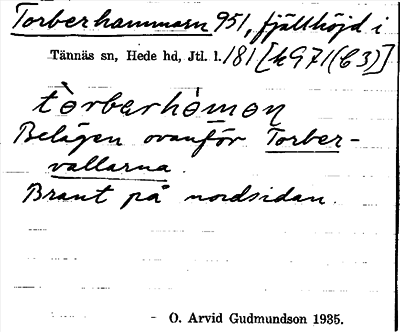 Torberhammarn 951, fjällhöjd i
Tännäs sn, Hede hd, Jtl. l. 181 [k971(C3)]
tòrbərhòmən
Belägen ovanför Torber-
vallarna.
Brant på nordsidan.
- O. Arvid Gudmundson 1935.